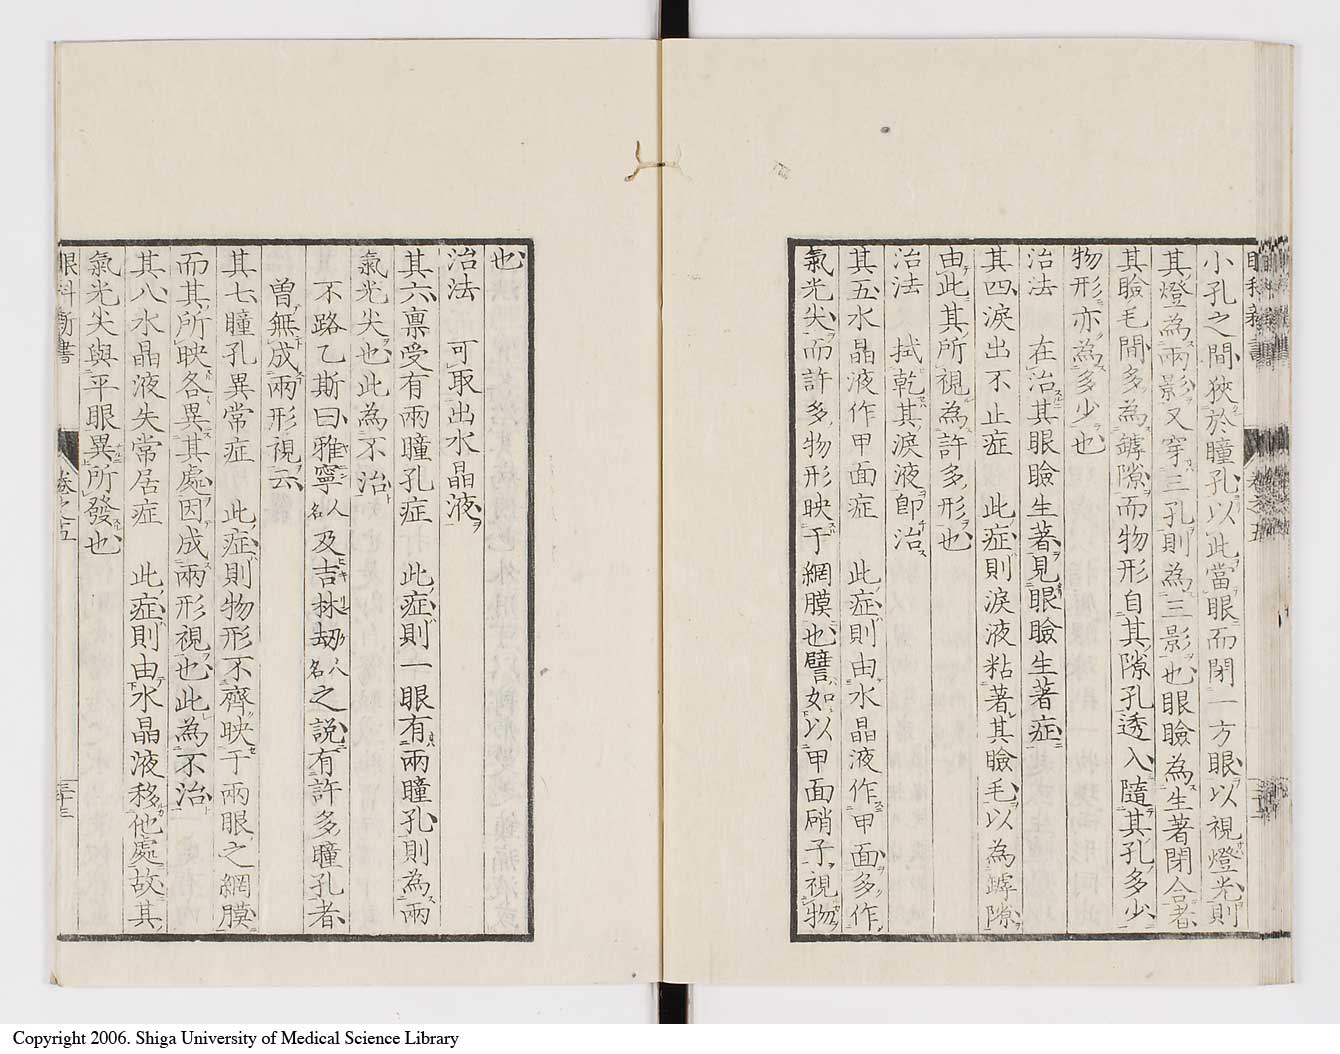 小孔之間狹於瞳孔以此當眼而閉一方眼以視燈光則
其燈為兩影又穿三孔則為三影也眼瞼為生著閉合者
其瞼毛間多為罅隙而物形自其隙孔透入隨其孔多少
物形亦為多少也
治法　在治其眼瞼生著見眼瞼生著症
其四淚出不止症　此症則淚液粘著其瞼毛以為罅隙
由此其所視為許多形也
治法　拭乾其淚液即治
其五水晶液作甲面症　此症則由水晶液作甲面多作
氣光尖而許多物形映于網膜也譬如以甲面硝子視物
也
治法　可取出水晶液
其六稟受有兩瞳孔症　此症則一眼有兩瞳孔則為兩
氣光尖也此為不治
不路乙斯曰雅寧人名及吉牀劫人名之說有許多瞳孔者
曾無成兩形視云
其七瞳孔異常症　此症則物形不齊映于兩眼之網膜
而其所映各異其處因成兩形視也此為不治
其八水晶液失常居症　此症則由水晶液移他處故其
氣光尖與平眼異所發也
眼科新書　卷之五　三十三
Copyright 2006. Shiga University of Medical Science Library